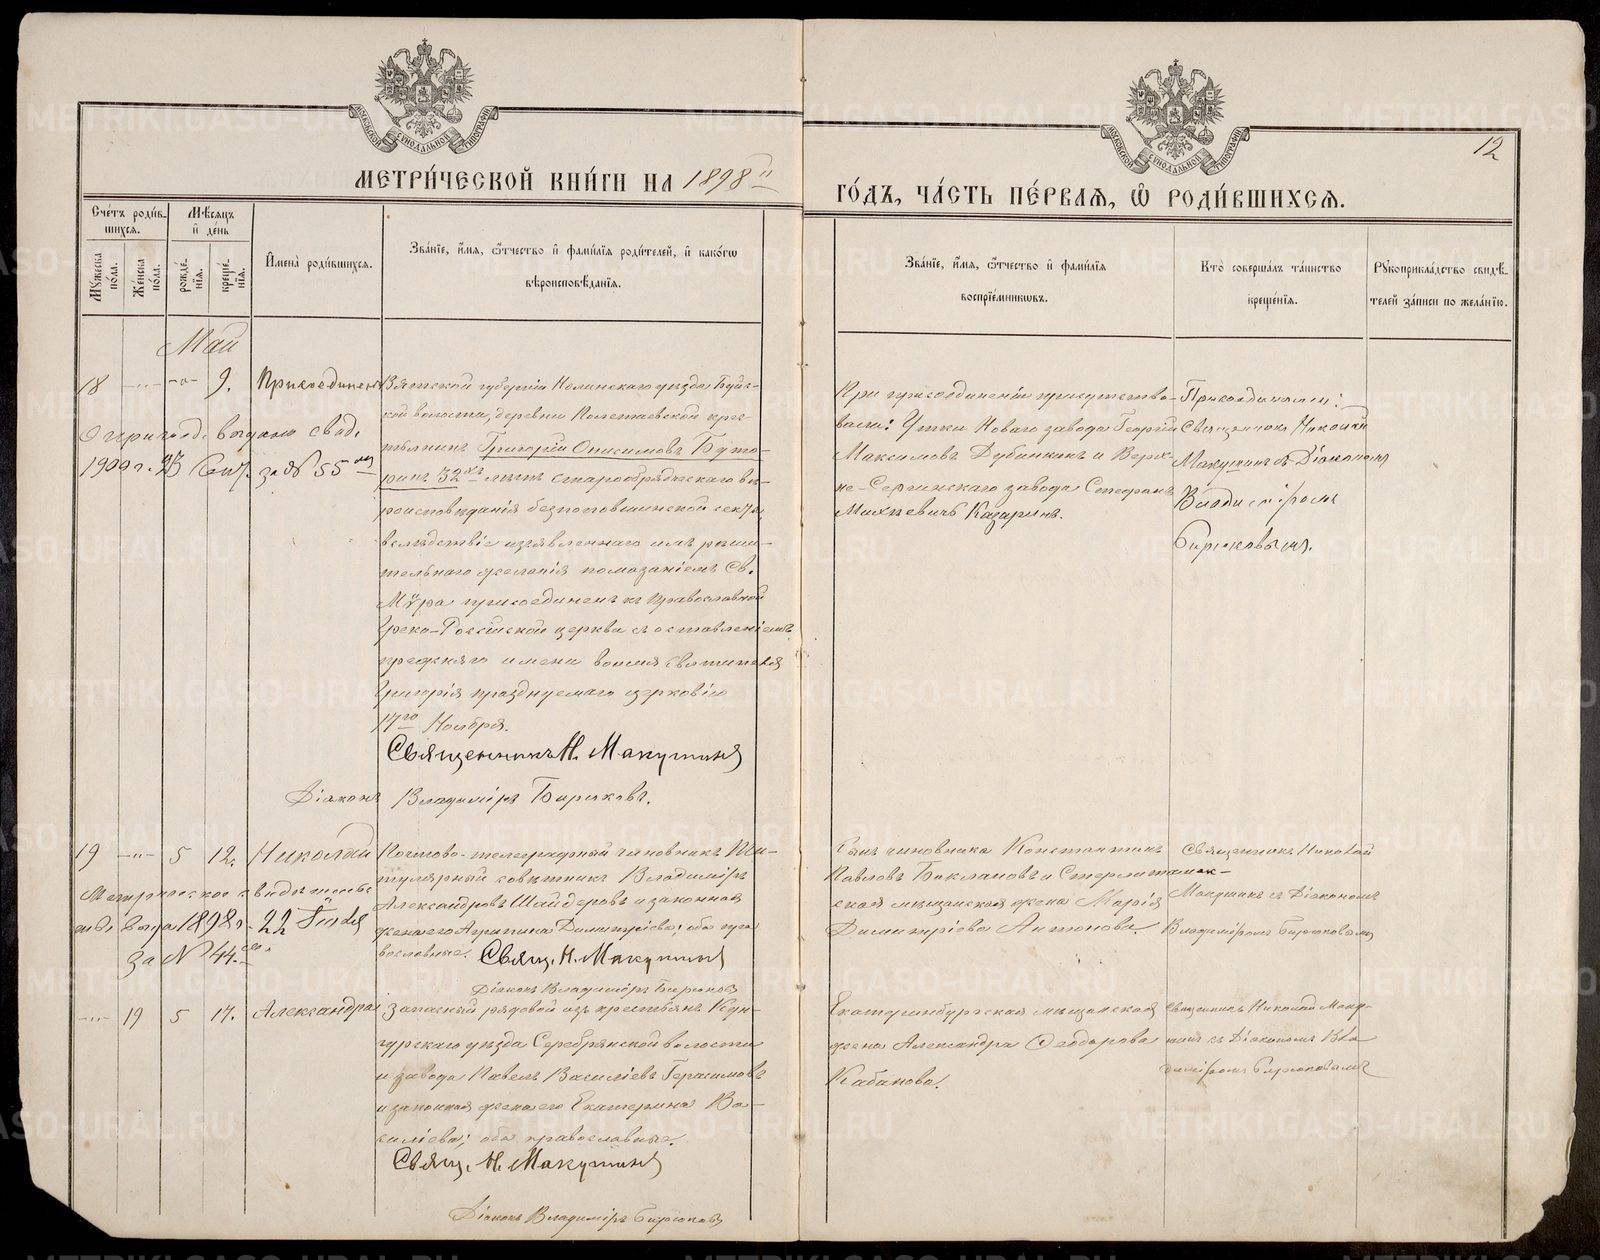 МЕТРИ́ЧЕСКОЙ КНИ́ГИ НА 1898й
ГО́ДЪ, ЧА́СТЬ ПЕ́РВАѦ, Ѡ҆ РОДИ́ВШИХСѦ.
12
Сче́тъ роди́в-
шихсѧ.
Мꙋ́жеска по́ла.
Же́нска по́ла.
Мѣ́сѧцъ и҆ де́нь
рожде́-
нїѧ.
креще́-
нїѧ.
И҆мена̀ роди́вшихсѧ.
Зва́нїе, и҆́мѧ, ѻ҆́тчество и҆ фами́лїѧ роди́телей, и҆ како́гѡ
вѣроисповѣ́данїѧ.
Зва́нїе, и҆́мѧ, ѻ҆́тчество и҆ фами́лїѧ
воспрїе́мникѡвъ.
Кто̀ соверша́лъ та́инство
креще́нїѧ.
Рꙋкоприкла́дство свидѣ́-
телей за́писи по жела́нїю.
Май
18 —"— -"- 9. Присоединенъ
О присоед. выдано свид.
1909 г. 23 Сент. за № 55
Вятской губернiи Нолинскаго уѣзда Буй-
ской волости, деревни Полетаевской крес-
тьянинъ Григорiй Онисимовъ Буто-
ринъ 32хъ лѣтъ старообрядческаго вѣ-
роисповѣданiя безпоповщинской секты,
вслѣдствiе изъявленнаго имъ рѣши-
тельнаго желанiя помазанiемъ Св.
Мѵра присоединенъ къ Православной
Греко-Россiйской церкви съ оставленiемъ
прежняго имени во имя Святителя
Григорiя празднуемаго церковiю
17го Ноября.
Священникъ Н. Макушинъ
Дiаконъ Владимiръ Бирюковъ.
При присоединенiи присутство-
вали: Утки Новаго завода Георгiй
Максимовъ Дубинкинъ и Верх-
не-Сергинскаго завода Стефанъ
Михѣевичъ Казаринъ.
Присоединяли:
Священникъ Николай
Макушинъ съ Дiакономъ
Владимiромъ
Бирюковымъ.
19 —"— 5 12. Николай
Метрическое свидѣтельс-
тво. выда. 1898 г. 22 Iюля
за № 44.
Почтово-телеграфный чиновникъ Ти-
тулярный совѣтникъ Владимiръ
Александровъ Шайдеровъ и законная
жена его Агрипина Димитрiева; оба пра
вославные. Свящ. Н. Макушинъ
Дiаконъ Владимiръ Бирюковъ
Сынъ чиновника Константинъ
Павловъ Баклановъ и Стерлитамак-
ская мѣщанская жена Марiя
Димитрiева Антонова.
Священникъ Николай
Макушинъ съ Дiакономъ
Владимiромъ Бирюковымъ
—"— 19 5 17. Александра
Запасный рядовой изъ крестьянъ Кун-
гурскаго уѣзда Серебрянской волости
и завода Павелъ Василiевъ Герасимовъ
и законная жена его Екатерина Ва-
силiева; оба православные.
Свящ. Н. Макушинъ
Дiаконъ Владимiръ Бирюковъ
Екатеринбургская мѣщанская
жена Александра Ѳеодорова
Кабанова.
Священникъ Николай Маку-
шинъ съ Дiакономъ Вла
димiромъ Бирюковымъ
METRIKI.GASO-URAL.RU